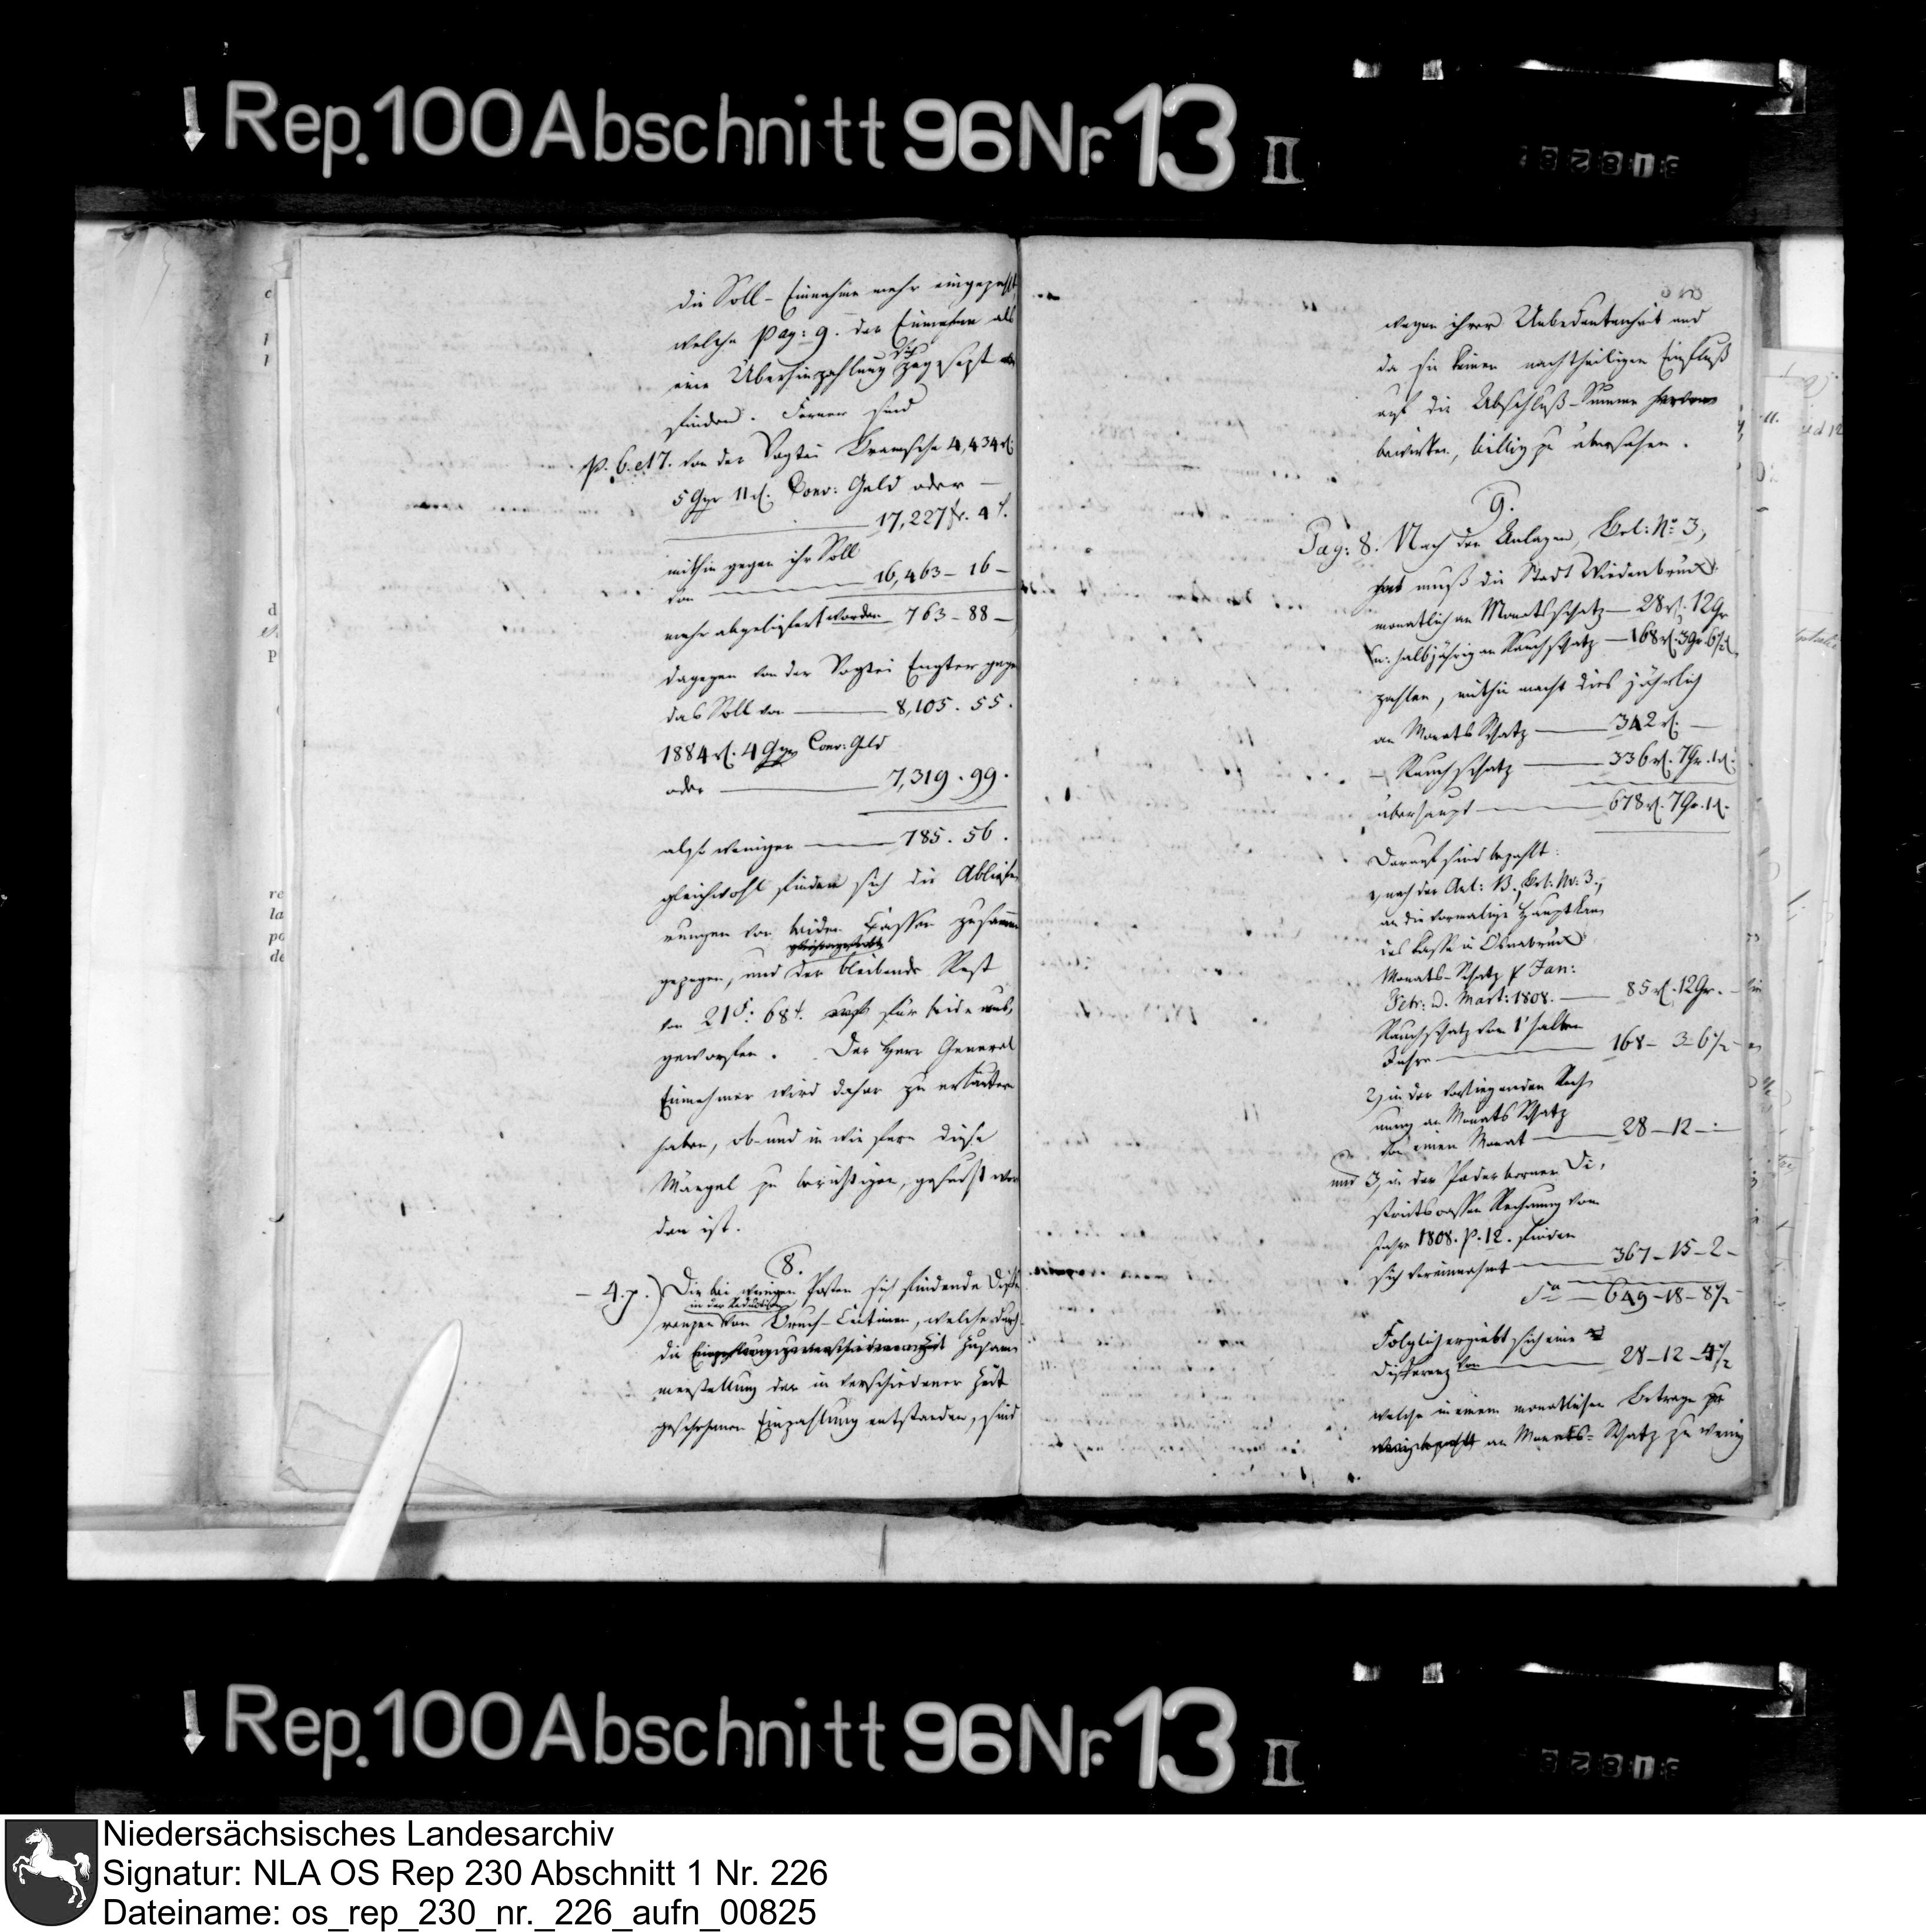 Rep. 100 Abschnitt 96 Nr. 13 II
die Soll-Einnahme mehr eingezahlt
welche pag: 9. der Einnahme als
eine Überhinzahlung sich zugesetzt
finden. Ferner sind
p. 6. et 7. von der Vogtei Bramsche 4,434 rt.
5 Ggr 11 d. Conv: Geld oder —
17,227 fr. 4 c.
mithin gegen ihr Soll
von — 16,463 — 16 —
mehr abgeliefert worden 763 — 88 —
dagegen von der Vogtei Engter gegen
das Soll von — 8,105. 55.
1884 rt. 4 Ggr Conv: Geld
oder — 7,319. 99.
also weniger — 785. 56.
gleichwohl finden sich die Ablief
rungen von beiden Cassen zusammen
gezogen, und der bleibende Rest
von 21 f: 68 c. für beide aus,
geworfen. Der Herr General
Einnehmer wird daher zu erläutern
haben, ob und in wie fern diese
Mängel zu berichtigen, gesucht wor
den ist.
8.
— 4. 7. Die bei einigen Posten sich findende Diffe
in der Reduction
renzen von Bruch-Centimen, welche durch
die Zusam
menstellung der in verschiedener Zeit
geschehenen Einzahlung entstanden, sind
wegen ihrer Unbedeutenheit und
da sie keinen nachtheiligen Einfluß
auf die Abschluß-Summe
bewirken, billig zu übersehen.
9.
Pag: 8. Nach den Anlagen, Bel: No 3,
muß die Stadt Wiedenbrück
monatlich an Monatsschatz — 28 rt. 12 Gr
u: halbjährig an Rauchschatz — 168 rt. 3 Gr. 6 1/2 d
zahlen, mithin macht dies jährlich
an Monats Schatz — 342 rt. —
— Rauchschatz — 336 rt. 7 Gr. 1 d.
überhaupt — 678 rt. 7 Gr. 1 d.
Darauf sind bezahlt:
1, nach der Anl: B., Bel: No: 3.,
an die vormalige Haupt Lan,
des Kasse in Osnabrück
Monats-Schatz p Jan:
Febr: u. Mart: 1808. — 85 rt. 12 Gr. —
Rauchschatz vom 1' halben
Jahre — 168 — 3 — 6 1/2 —
2, in der vorliegenden Rech,
nung an Monats Schatz
von einen Monat — 28 — 12 —
und 3, in der Paderborner Di,
stricts cassen Rechnung vom
Jahre 1808. p. 12. finden
sich vereinnahmt — 367 — 15 — 2 —
Sa — 649 — 18 — 8 1/2
Folglich ergiebt sich eine
Differenz von — 28 — 12 — 4 1/2
welche in einem monatlichen Betrage
an Monats-Schatz zu wenig
Rep. 100 Abschnitt 96 Nr. 13 II
Niedersächsisches Landesarchiv
Signatur: NLA OS Rep 230 Abschnitt 1 Nr. 226
Dateiname: os_rep_230_nr._226_aufn_00825